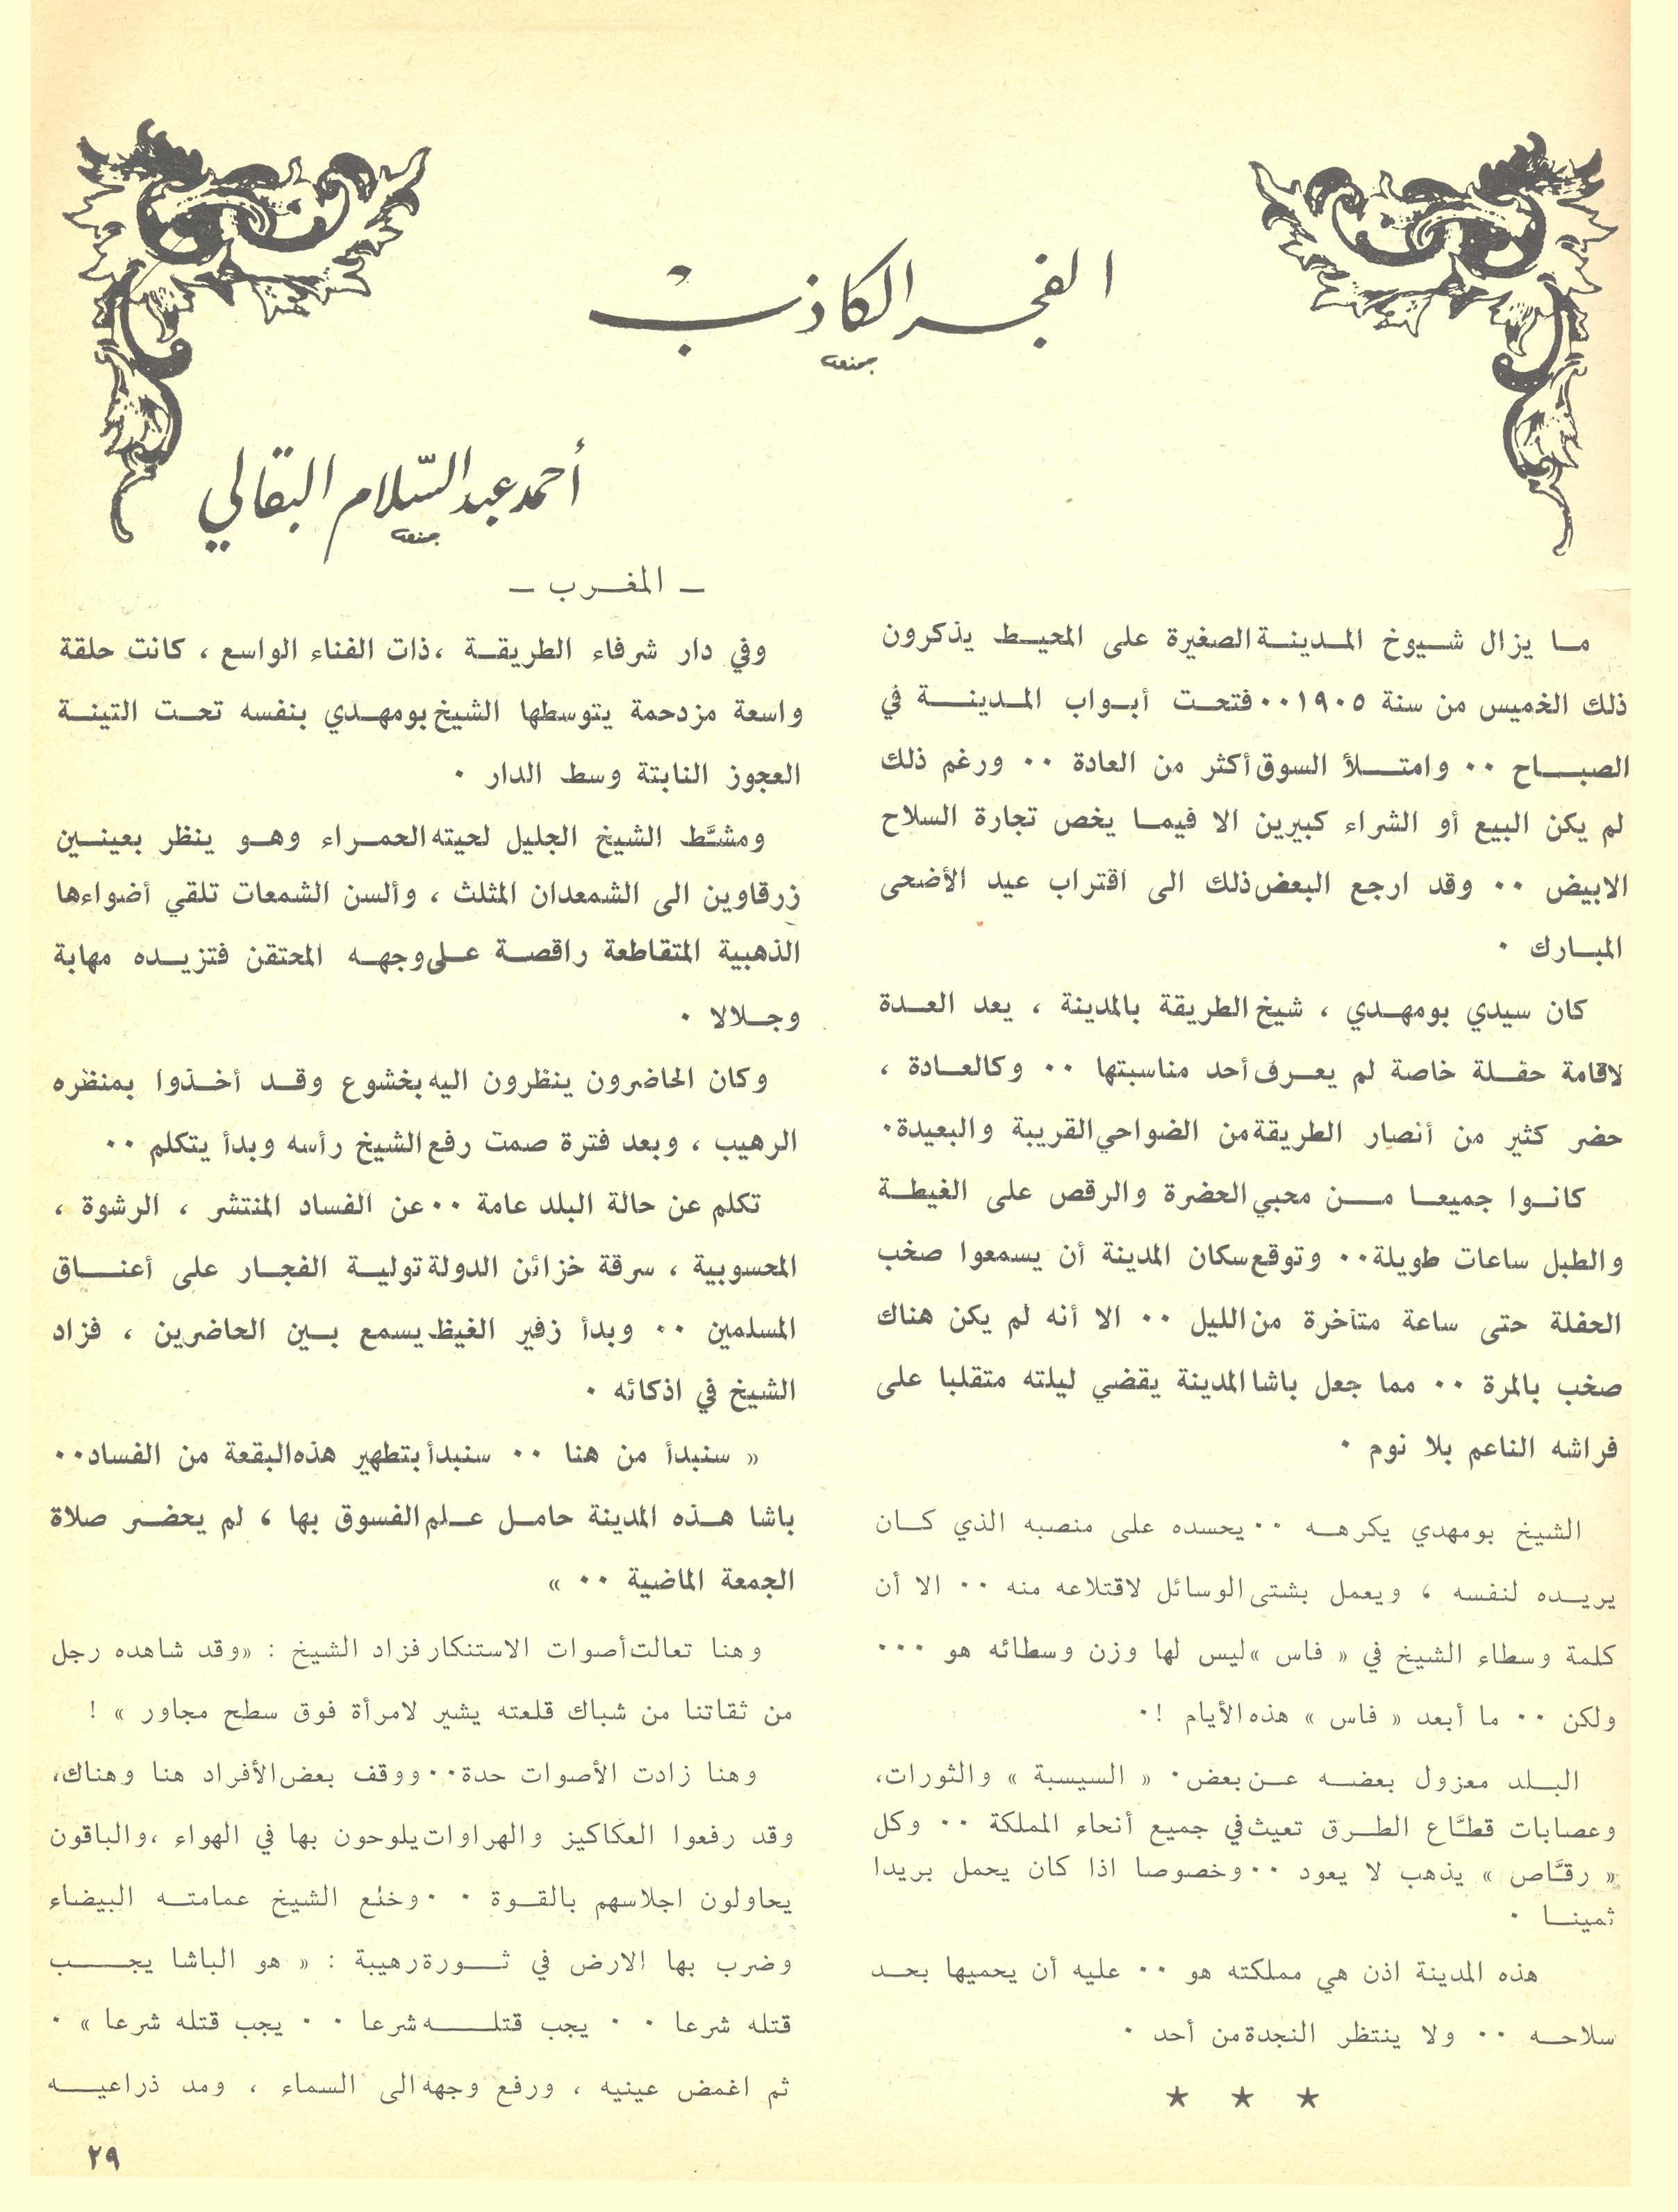 الفجر الكاذب
أحمد عبد السّلام البقالي
ـ المغـرب ـ
مـا يزال شـيوخ المـدينـة الصغيرة على المحيـط يذكرون
ذلك الخميس من سنة ١٩٠٥ ٠٠ فتحـت أبـواب المـدينـــة في
الصبـــاح ٠٠ وامتــلأ السوق أكثر من العادة ٠٠ ورغم ذلك
لم يكن البيع أو الشراء كبيرين الا فيمـا يخص تجارة السلاح
الابيض ٠٠ وقد ارجع البعض ذلك الى اقتراب عيد الأضحى
المبـارك ٠
كان سيدي بومهـدي ، شيخ الطريقة بالمدينة ، يعد العـدة
لاقامة حفـلة خاصة لم يعـرف أحد مناسبتها ٠٠ وكالعـادة ،
حضر كثير من أنصار الطريقة من الضواحي القريبة والبعيدة٠
كانـوا جميعـا مـن محبي الحضرة والرقص على الغيطـة
والطبل ساعات طويلة٠٠ وتوقع سكان المدينة أن يسمعوا صخب
الحفلة حتى ساعة متأخرة من الليل ٠٠ الا أنه لم يكن هناك
صخب بالمرة ٠٠ مما جعل باشا المدينة يقضي ليلته متقلبا على
فراشه الناعم بلا نوم ٠
الشيخ بومهدي يكرهـه ٠٠ يحسده على منصبه الذي كـان
يريـده لنفسه ، ويعمل بشتى الوسائل لاقتلاعه منه ٠٠ الا أن
كلمة وسطاء الشيخ في « فاس » ليس لها وزن وسطائه هو ٠٠٠
ولكن ٠٠ ما أبعد « فاس » هذه الأيام !٠
البـلد معزول بعضـه عـن بعض٠ « السيسبة » والثورات،
وعصابات قطـَّاع الطـرق تعيث في جميع أنحاء المملكة ٠٠ وكل
« رقـَّاص » يذهب لا يعود ٠٠ وخصوصا اذا كان يحمل بريدا
ثمينـا ٠
هذه المدينة اذن هي مملكته هو ٠٠ عليه أن يحميها بحـد
سلاحـه ٠٠ ولا ينتظر النجدة من أحد ٠
★ ★ ★
وفي دار شرفاء الطريقـة ،ذات الفناء الواسع ، كانت حلقة
واسعة مزدحمة يتوسطها الشيخ بومهـدي بنفسه تحـت التينـة
العجوز النابتة وسط الدار ٠
ومشـَّط الشيخ الجليل لحيته الحمـراء وهـو ينظر بعينـين
زرقاوين الى الشمعدان المثلث ، وألسن الشمعات تلقي أضواءها
الذهبية المتقاطعة راقصـة علـى وجهـه المحتقن فتزيـده مهابة
وجـلالا ٠
وكان الحاضرون ينظرون اليه بخشوع وقـد أخـذوا بمنظره
الرهيب ، وبعد فترة صمت رفع الشيخ رأسه وبدأ يتكلم ٠٠
تكلم عن حالة البلد عامة ٠٠ عن الفساد المنتشر ، الرشوة ،
المحسوبية ، سرقة خزائن الدولة توليـة الفجـار على أعنـــاق
المسلمين ٠٠ وبدأ زفير الغيظ يسمع بـين الحاضرين ، فزاد
الشيخ في اذكائه ٠
« سنبدأ من هنا ٠٠ سنبدأ بتطهير هذه البقعة من الفساد٠٠
باشا هـذه المدينة حامـل عـلم الفسوق بها ، لم يحضـر صلاة
الجمعة الماضية ٠٠ »
وهنا تعالت أصوات الاستنكار فزاد الشيخ : «وقد شاهده رجل
من ثقاتنا من شباك قلعته يشير لامرأة فوق سطح مجاور » !
وهنا زادت الأصوات حدة٠٠ ووقف بعض الأفراد هنا وهناك،
وقد رفعوا العكاكيز والهراوات يلوحون بها في الهواء ،والباقون
يحاولون اجلاسهم بالقـوة ٠٠ وخلع الشيخ عمامتـه البيضاء
وضرب بها الارض في ثـــورة رهيبة : « هو الباشا يجـــب
قتله شرعا ٠٠ يجب قتلــــه شرعا ٠٠ يجب قتله شرعا » ٠
ثم اغمض عينيه ، ورفع وجهه الى السماء ، ومد ذراعيــه
٢٩